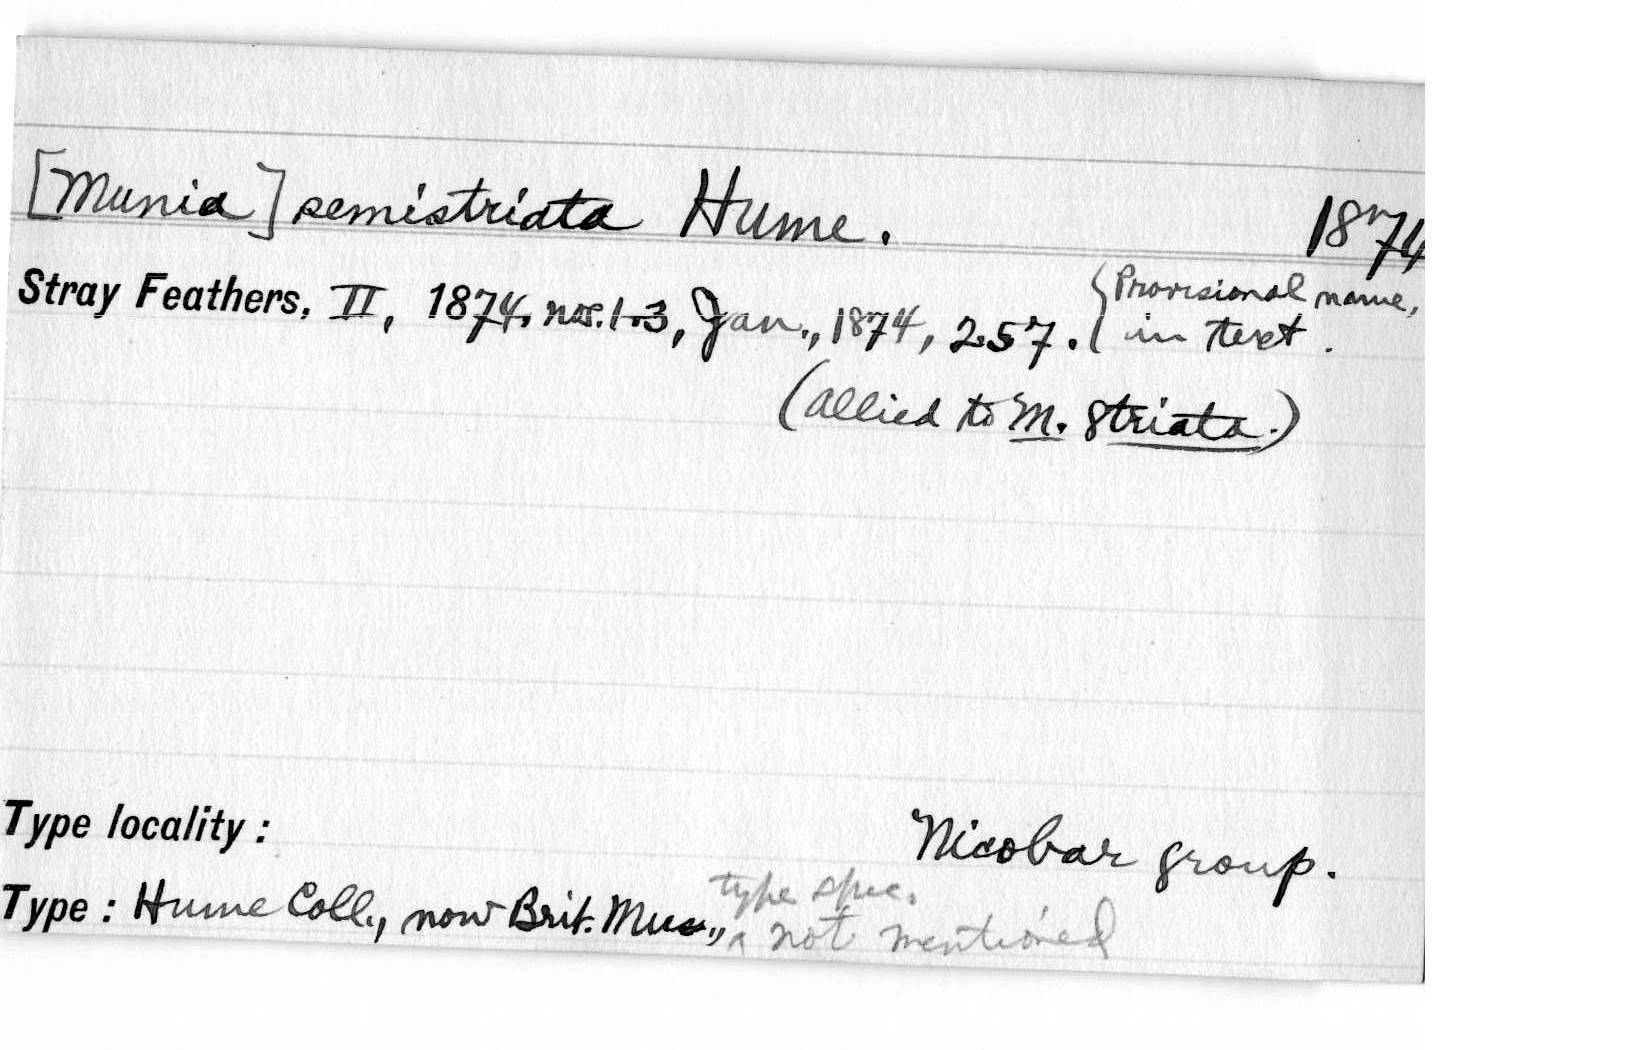 [Munia] semistriata Hume. 1874
Stray Feathers, II, 1874, nos. 1-3, Jan., 1874, 257. {Provisional name,
in text.
(allied to M. striata.)
Type locality: Nicobar group.
Type: Hume Coll., now Brit. Mus., ^ type spec.
not mentioned